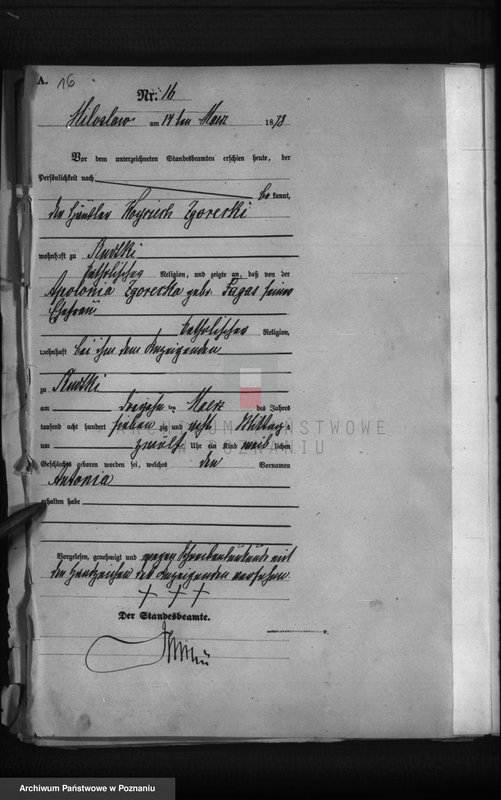 A. 16
Nr. 16
Miloslaw am 14ten Maerz 1878
Vor dem unterzeichneten Standesbeamten erschien heute, der
Persönlichkeit nach
be kannt,
der Häusler Woyciech Zgorecki
wohnhaft zu
katholischer Religion, und zeigte an, daß von der
Apolonia Zgorecka geb. Fagas seiner
Ehefrau
katholischer Religion,
wohnhaft bei ihm dem Anzeigenden
zu
am ten Maerz des Jahres
tausend acht hundert sieben zig und acht Mittag s
um zwölf Uhr ein Kind weib lichen
Geschlechts geboren worden sei, welches den Vornamen
Antonia
erhalten habe
Vorgelesen, genehmigt und wegen Schreibensunkunde mit
den Handzeichen des Anzeigenden versehen.
+ + +
Der Standesbeamte.
ARCHIWUM PAŃSTWOWE
W POZNANIU
Archiwum Państwowe w Poznaniu